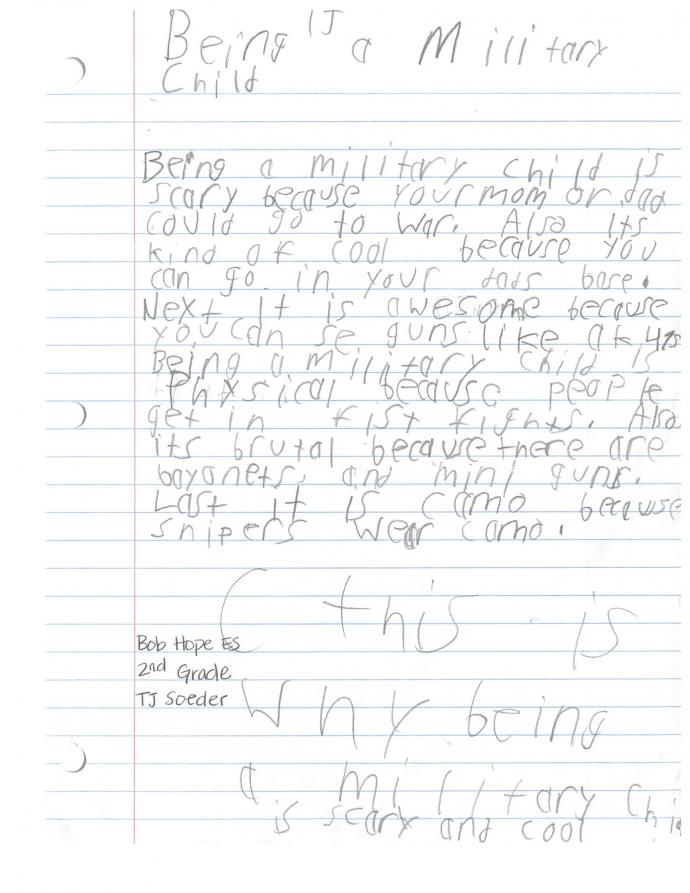 Being TJ a Military
Child
Being a military child is
scary because your mom or dad
could go to war. Also its
kind of cool because you
can go in your dads base.
Next it is awesome because
you can se guns like ak 47s
Being a military child is
Physical because people
get in fist fights. Also
its brutal because there are
bayonets, and mini guns.
Last it is camo because
snipers wear camo.
( this is
Bob Hope ES
2nd Grade
TJ Soeder
Why being
a military Child
is scary and cool